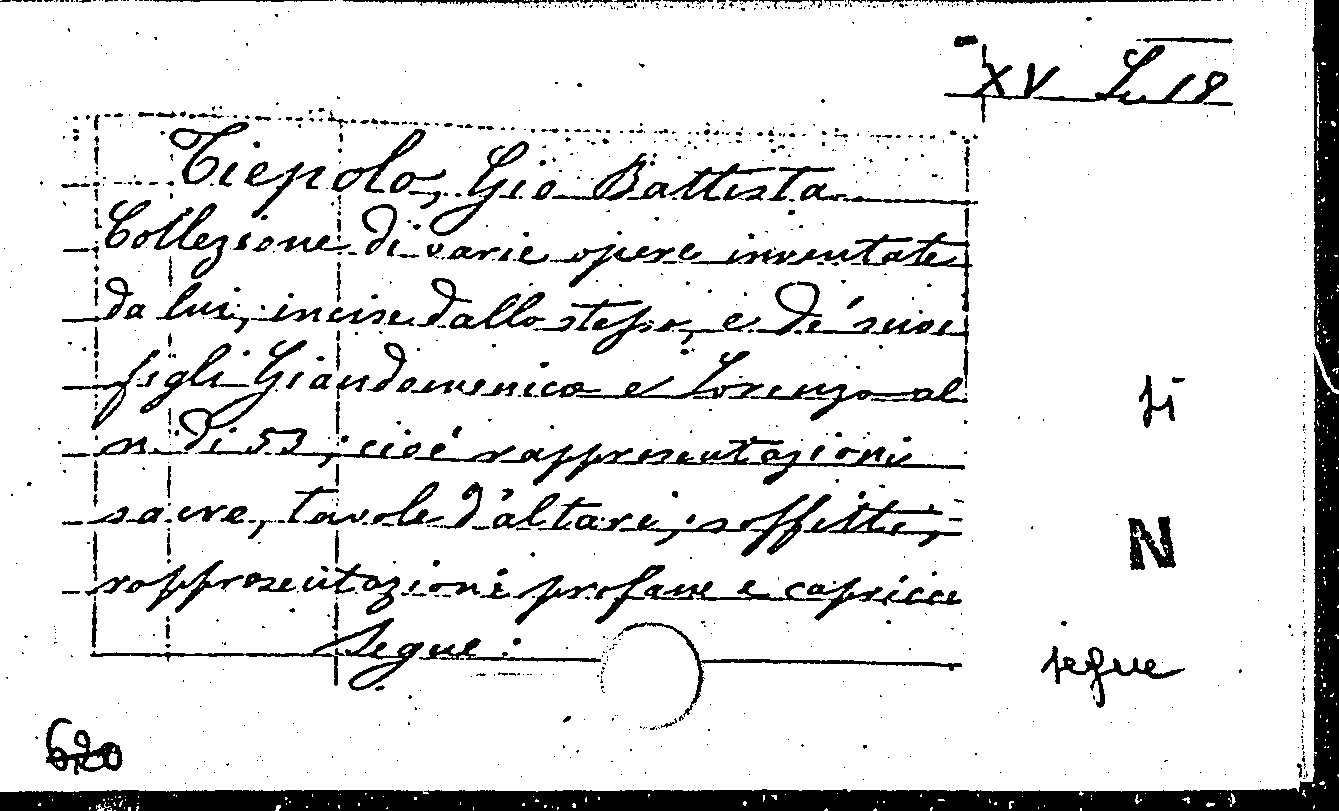 XV L. 18
Tiepolo, Gio Battista
Collezione di varie opere inventate
da lui, incise dallo stesso, e dé suoi
figli Giandomenico e Lorenzo al
n. di 53; cioé rappresentazioni
sacre, tavole d'altare, soffitti,
rappresentazioni profane e capricci
Segue:
si
N
segue
620